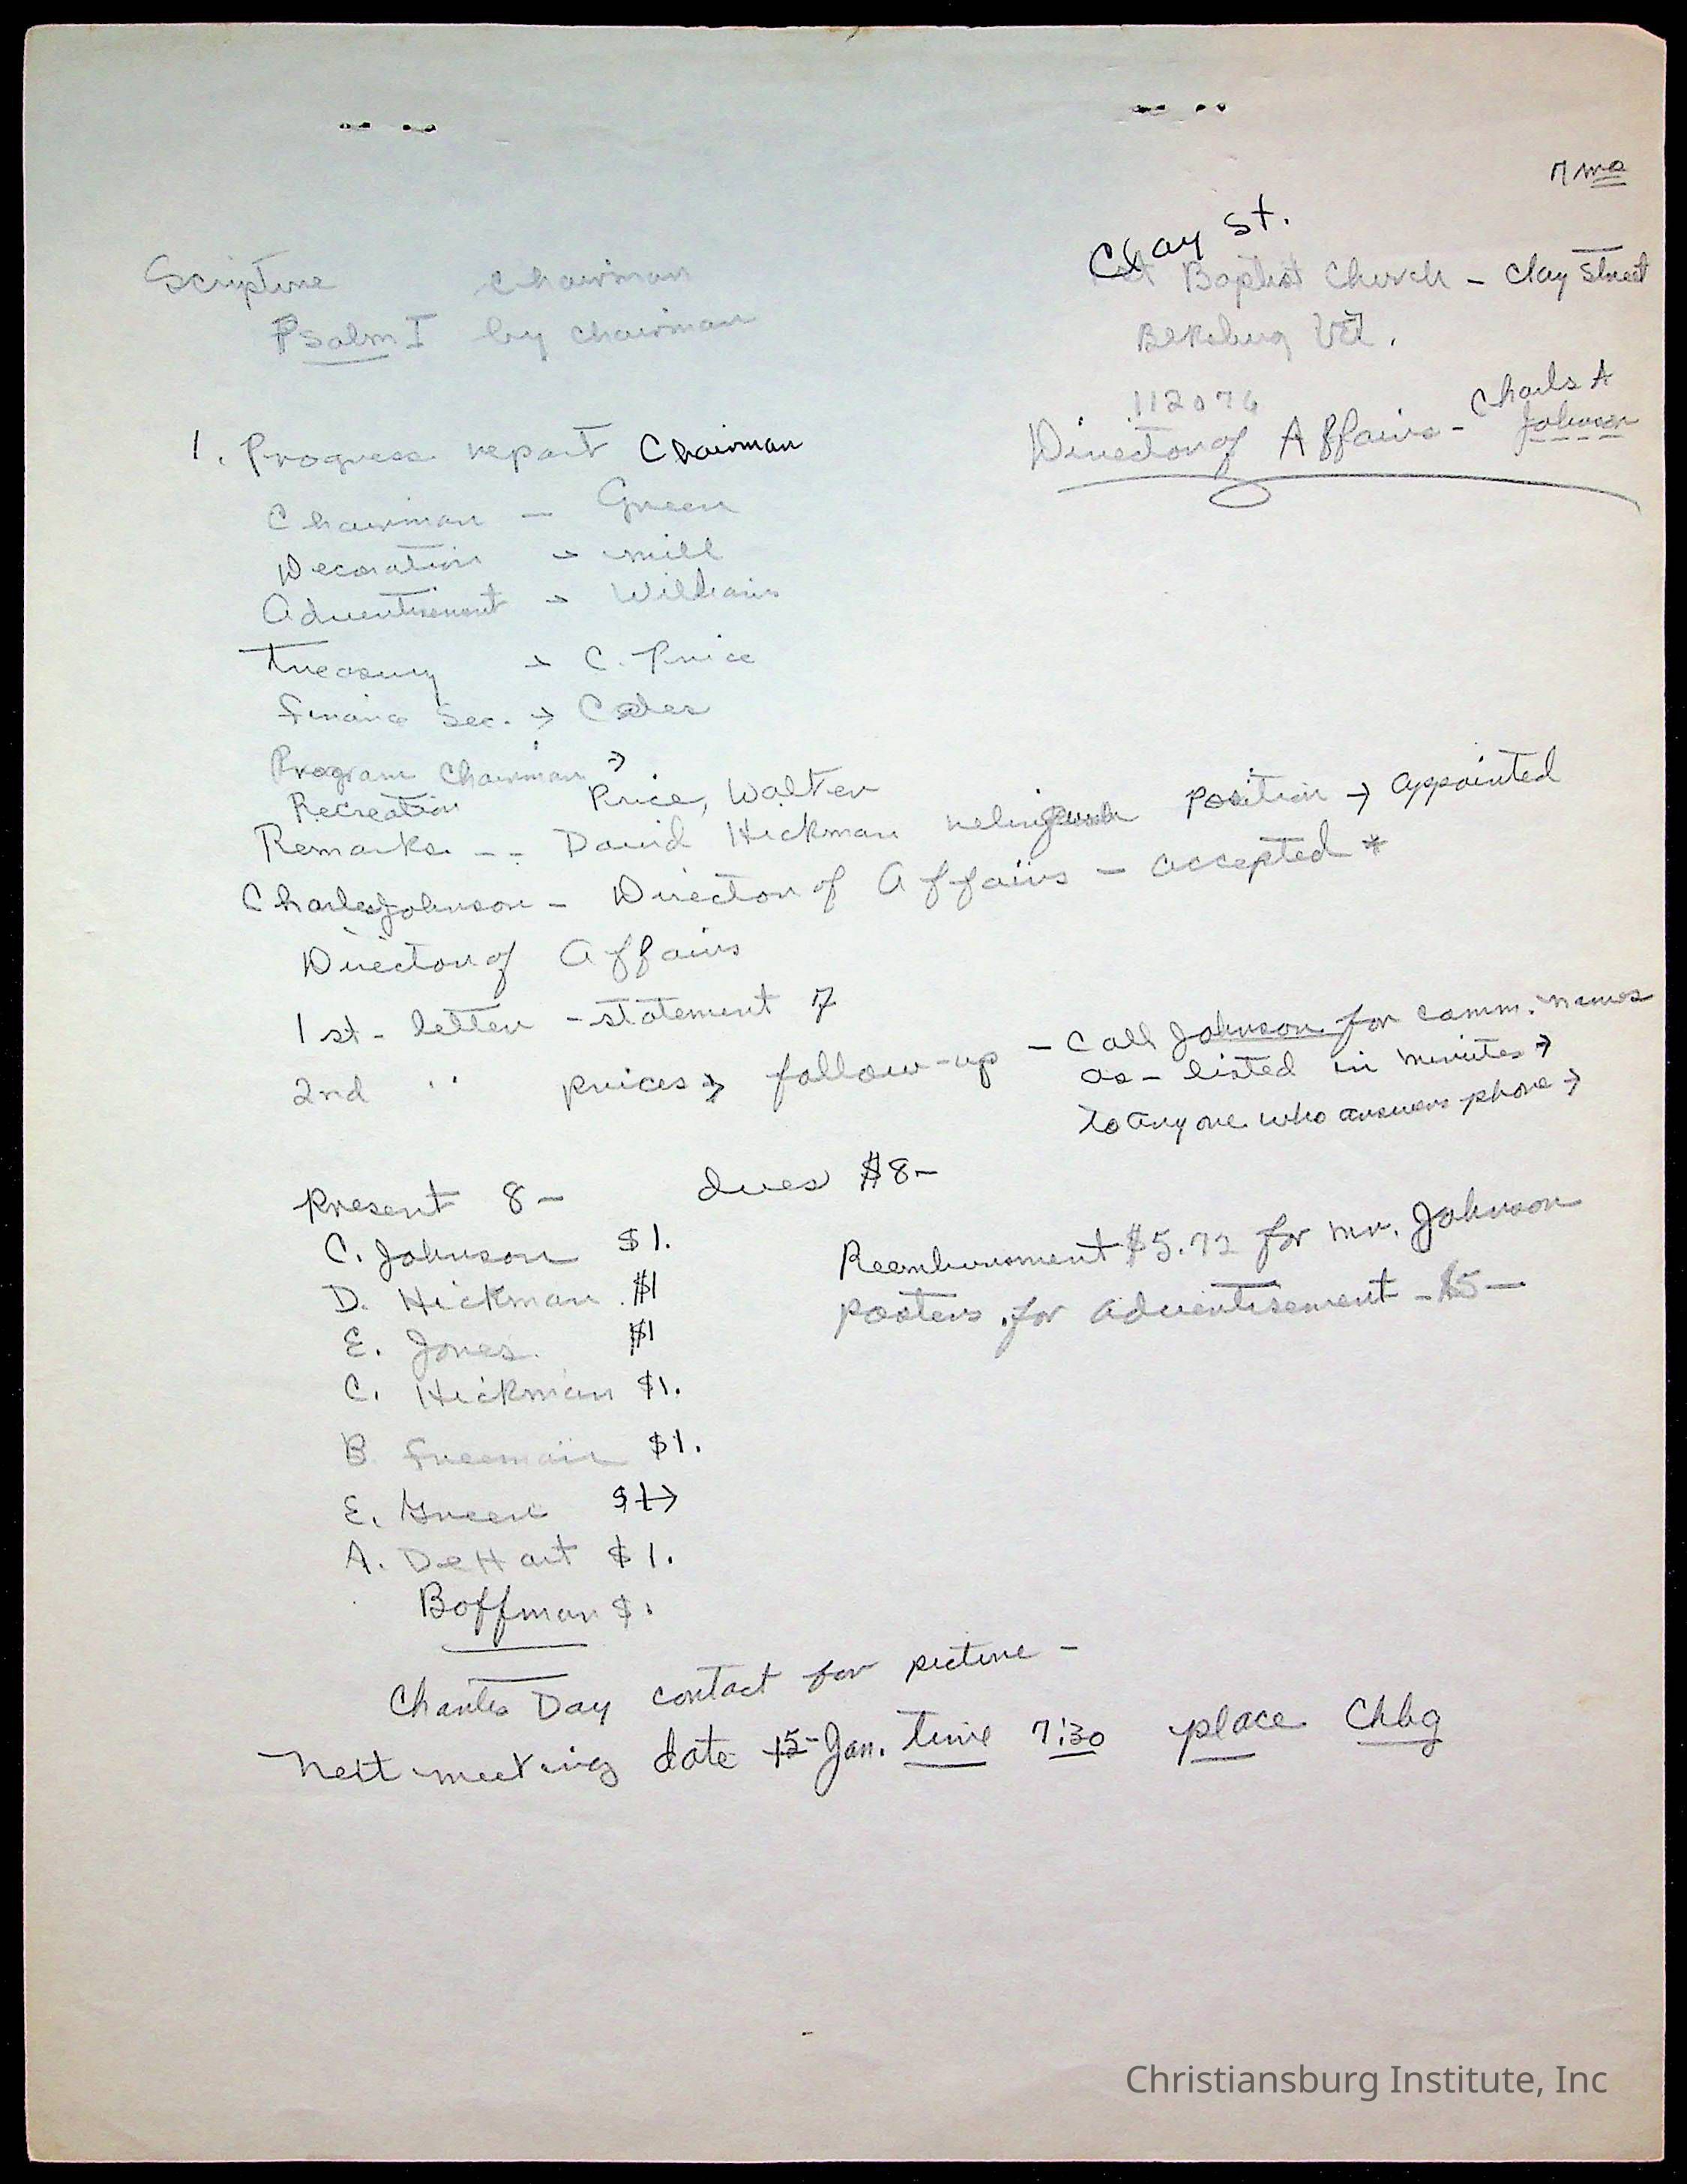 7 mo
Clay St.
Scripture Chairman
1st Baptist Church - Clay Street
Psalm I by chairman
Blksburg Va.
112076
Director of Affairs - Charls A Johnson
1. Progress report Chairman
Chairman - Green
Decoration - mill
Advertisement - Williams
Treasury - C. Price
Finance Sec. → Coles
Program Chairman →
Recreation Price, Walter
Remarks -- David Hickman position → appointed
Charles Johnson - Director of Affairs - accepted *
Director of Affairs
1st - letter - statement 7
2nd " prices → follow-up - Call Johnson for comm. names
as - listed in minutes →
to anyone who answers phone →
Present 8 - dues $8-
C. Johnson $1.
D. Hickman $1
E. Jones. $1
C. Hickman $1.
B. Freeman $1.
E. Green $1 →
A. DeHart $1.
Boffman $.
Reembursment $5.72 for mr. Johnson
posters for advertisement - $5-
Charles Day contact for picture -
Next meeting date 15-Jan. time 7:30 place Chbg
Christiansburg Institute, Inc